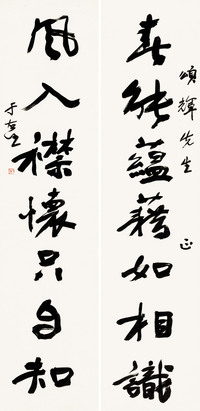 春能蘊藉如相識
頌輝先生 正
風入襟懷只自知
于右任